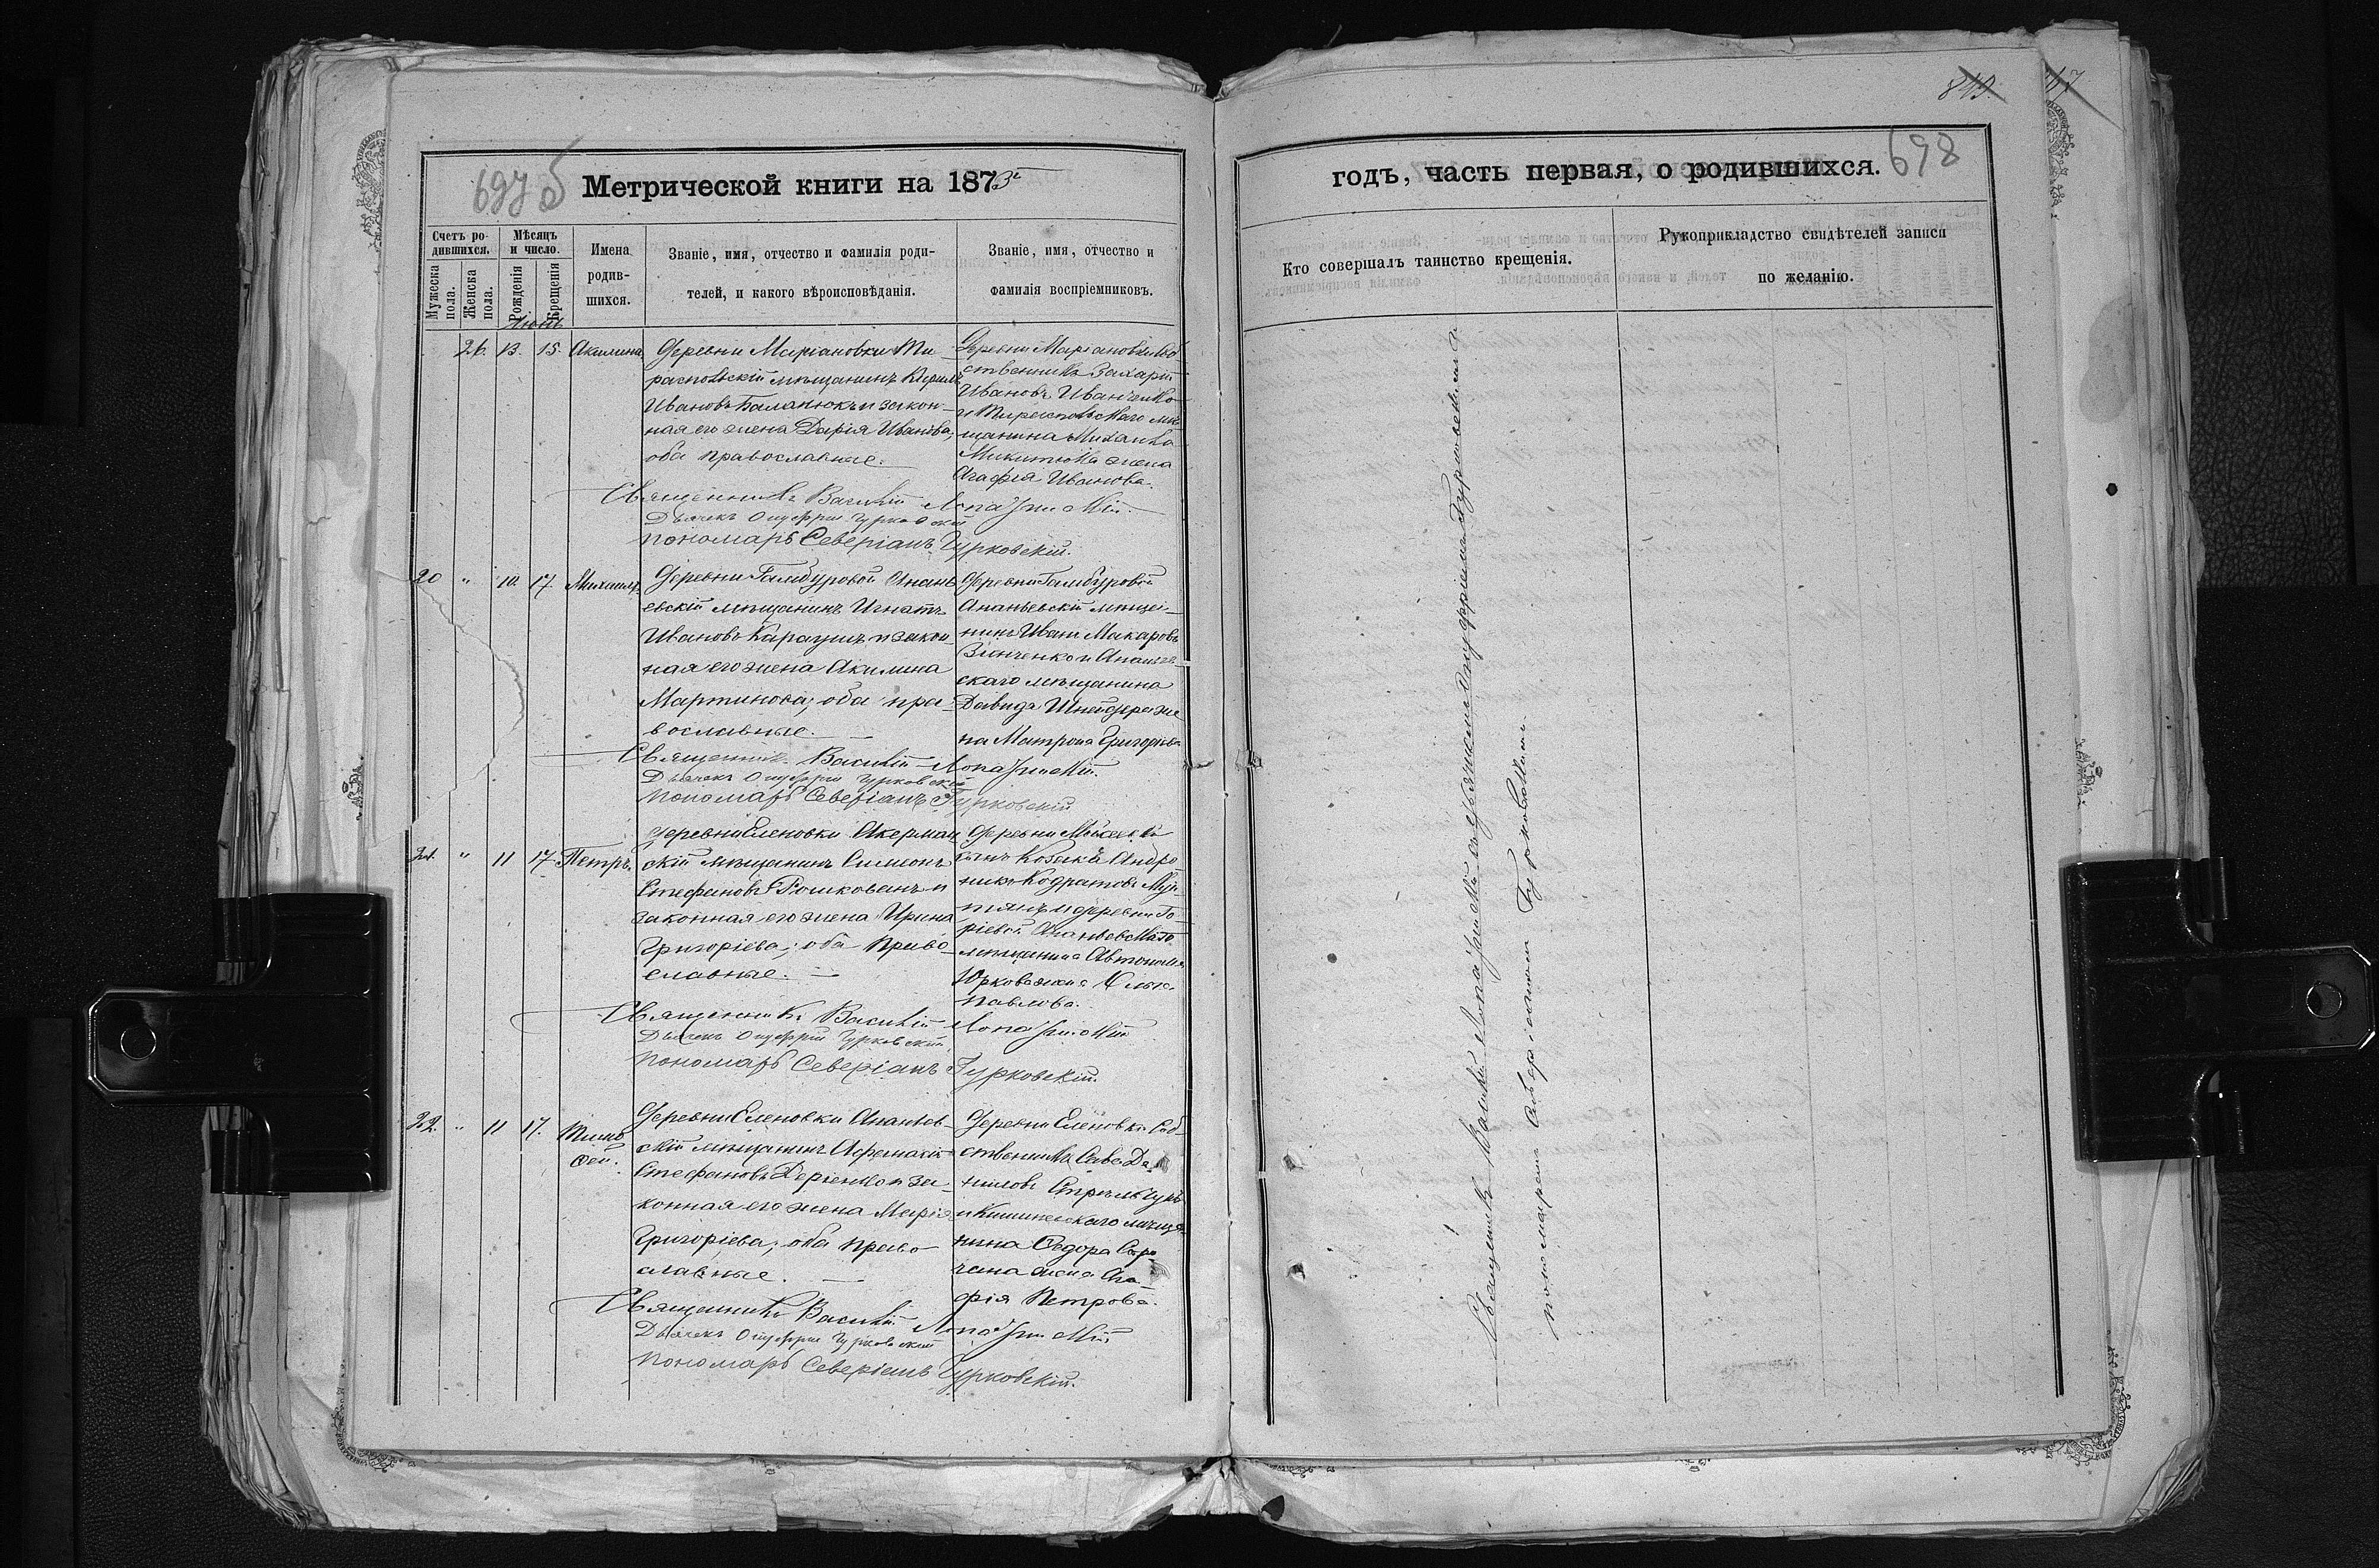 697 б
Метрической книги на 1873й
Счетъ ро-
дившихся.
Мужеска
пола.
Женска
пола.
Мѣсяцъ
и число.
Рожденія
Крещенія
Имена
родив-
шихся.
Званіе, имя, отчество и фамилія роди-
телей, и какого вѣроисповѣданія.
Званіе, имя, отчество и
фамилія воспріемниковъ.
26. 13. 15. Акилина
Деревни Маріановки Ти-
распольскій мѣщанинъ
Ивановъ Баланюкъ и закон-
ная его жена Дарія Иванова,
оба православные.
Деревни Маріановки Соб
ственникъ Захарій
Ивановъ Иванченко
и Тираспольскаго мѣ-
щанина Михаила
Микитюка жена
Агафія Иванова.
Священникъ Василій Лопатинскій
Дьячекъ Онуфрій Гурковскій
Пономарь Северіанъ Гурковскій.
20 " 10. 17. Михаилъ
Деревни Гамбуровой Анань
евскій мѣщанинъ Игнатъ
Ивановъ Караушъ и закон
ная его жена Акилина
Мартинова, оба пра-
вославные.
Деревни Гамбуровой
Ананьевскій мѣща-
нинъ Иванъ Макаровъ
Зінченко и Ананьев-
скаго мѣщанина
Давида Шнейдера же
на Матрона Григорьева
Священникъ Василій Лопатинскій.
Дьячекъ Онуфрій Гурковскій
Пономарь Северіанъ Гурковскій
21. " 11 17 Петръ.
Деревни Еленовки Акерман
скій мѣщанинъ Симеонъ
Стефановъ Рошкованъ и
законная его жена Ирина
Григоріева, оба право-
славные.
Деревни
сынъ Козака Андро
никъ Кодратовъ
и деревни
Ананьевскаго
мѣщанина Автонома
Юркова жена
Павлова.
Священникъ Василій Лопатинскій
Дьячекъ Онуфрій Гурковскій
Пономарь Северіанъ Гурковскій.
22. " 11 17. Тимо
фей.
Деревни Еленовки Ананьев-
скій мѣщанинъ
Стефановъ Деріенко и за-
конная его жена Марія
Григоріева, оба право-
славные.
Деревни Еленовки Соб-
ственникъ Сава Да-
ниловъ Стрельчукъ
и Кишиневскаго мѣща-
нина Ѳедора
жена Ага-
фія Петрова.
Священникъ Василій Лопатинскій
Дьячекъ Онуфрій Гурковскій
Пономарь Северіанъ Гурковскій.
849.
698
годъ, часть первая, о родившихся.
Кто совершалъ таинство крещенія.
Рукоприкладство свидѣтелей записи
по желанію.
Священникъ Василій Лопатинскій съ дьячкомъ Онуфріемъ Гурковскимъ и
пономаремъ Северіаномъ Гурковскимъ.